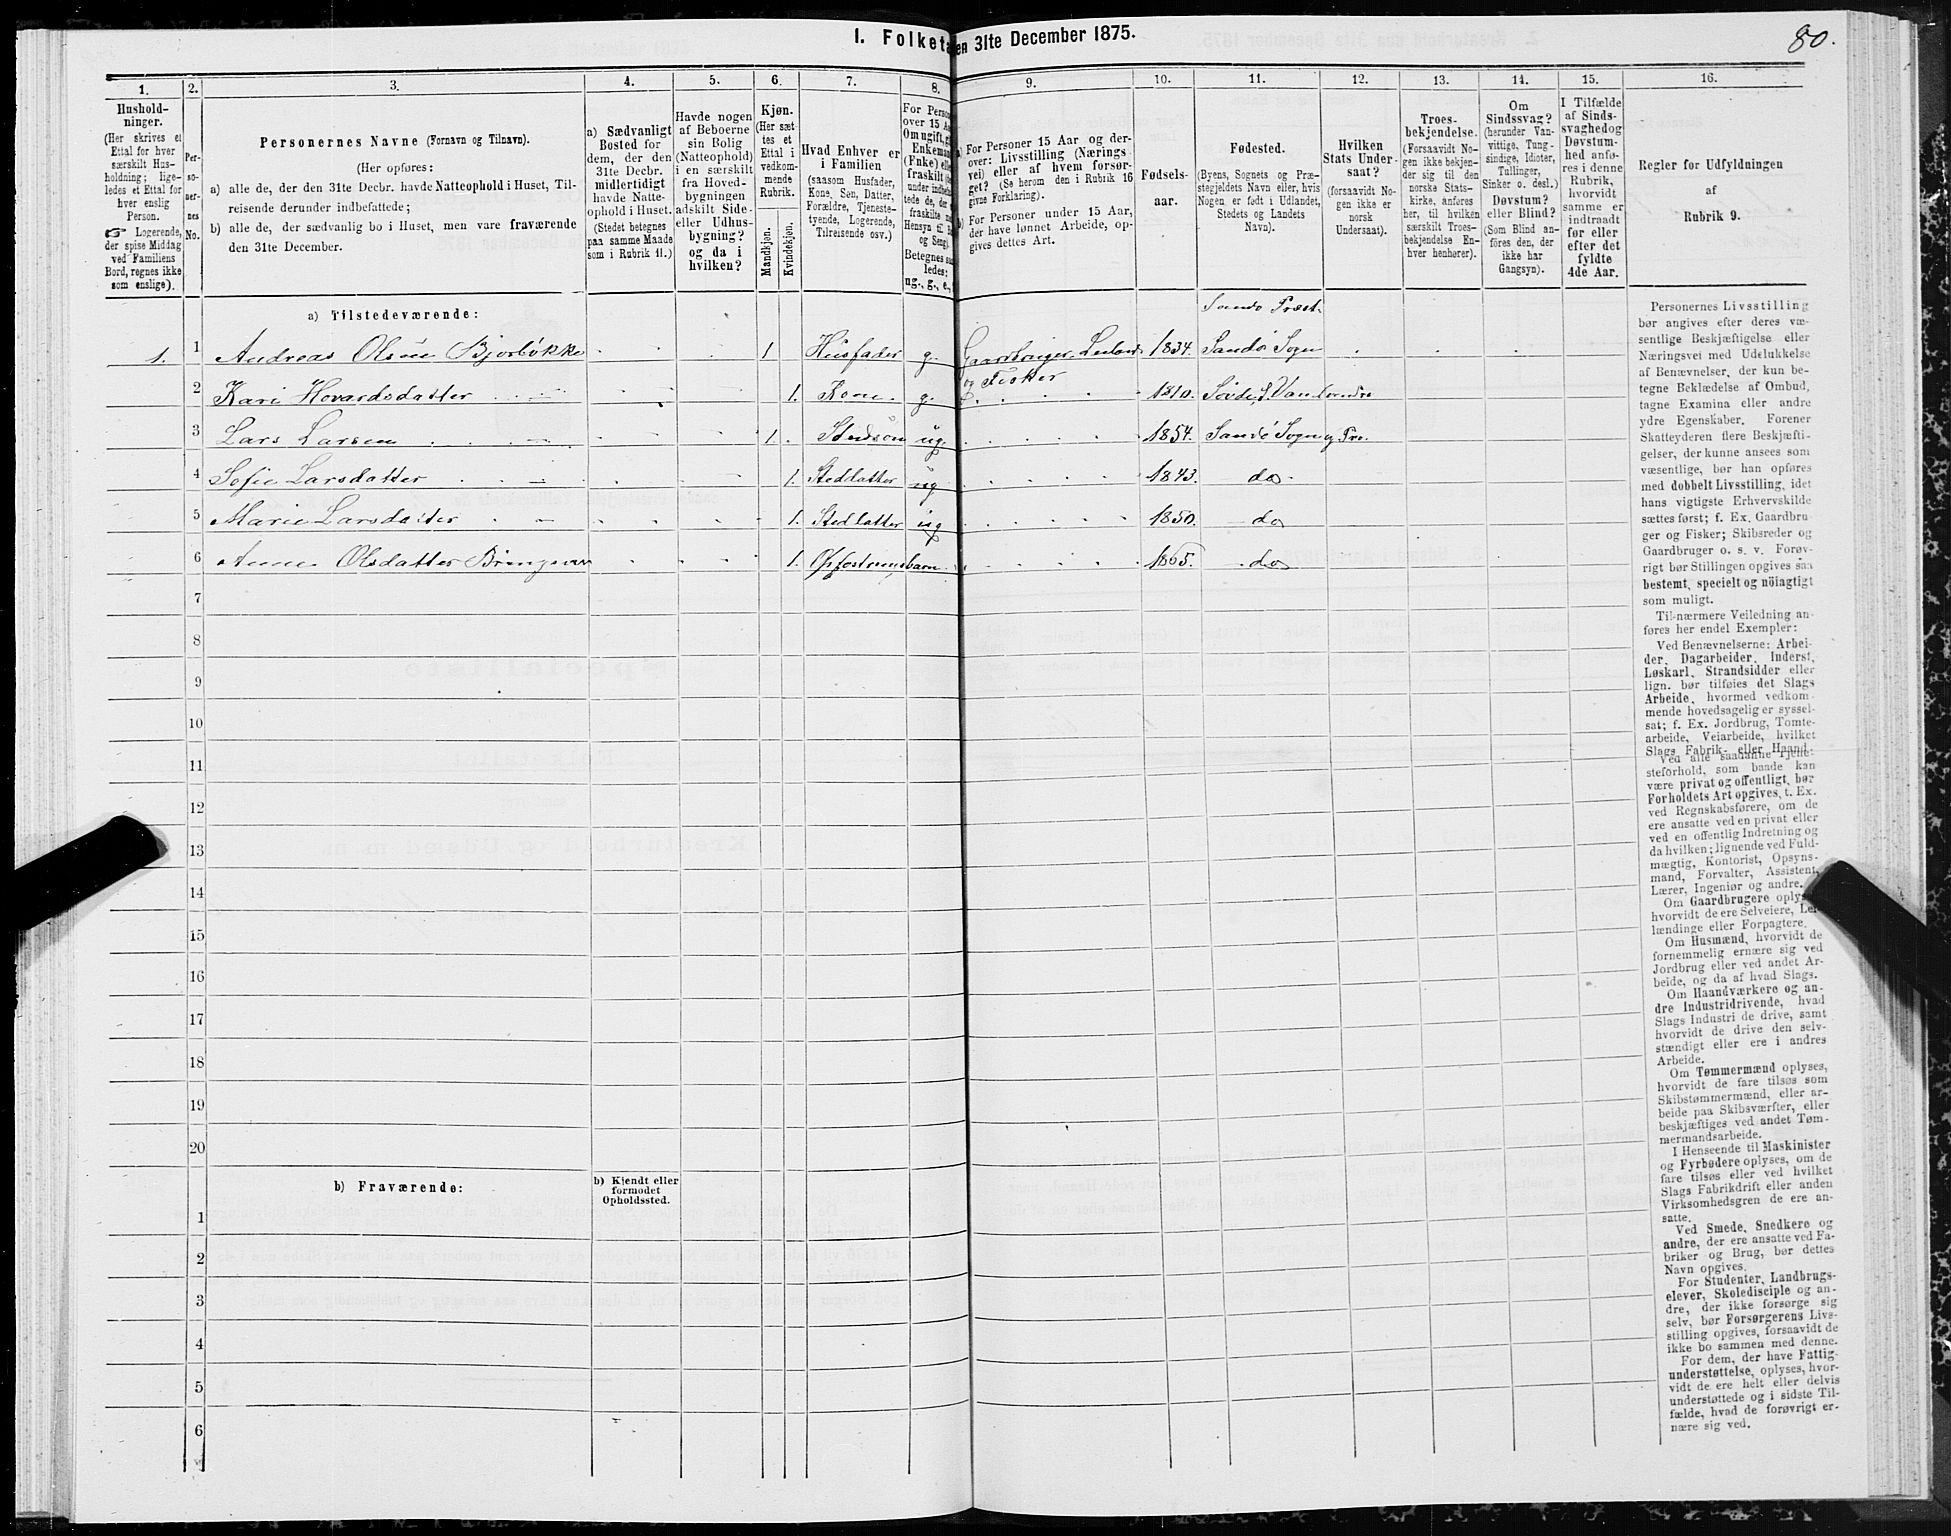 I. Folketa en 31te December 1875.
80.
1. 2. 3. 4. 5. 6. 7. 8. 9. 10. 11. 12. 13. 14. 15. 16.
Hushold-
ninger.
(Her skrives et
Ettal for hver
særskilt Hus-
holdning; lige-
ledes et Ettal for
hver enslig
Person.
☞ Logerende,
der spise Middag
ved Familiens
Bord, regnes ikke
som enslige).
Per-
soner-
nes
No.
Personernes Navne (Fornavn og Tilnavn).
(Her opføres:
a) alle de, der den 31te Decbr. havde Natteophold i Huset, Til-
reisende derunder indbefattede;
b) alle de, der sædvanlig bo i Huset, men vare fraværende
den 31te December.
a) Sædvanligt
Bosted for
dem, der den
31te Decbr.
midlertidigt
havde Natte-
ophold i Huset.
(Stedet betegnes
paa samme Maade
som i Rubrik 11.)
Havde nogen
af Beboerne
sin Bolig
(Natteophold)
i en særskilt
fra Hoved-
bygningen
adskilt Side-
eller Udhus-
bygning?
og da i
hvilken?
Kjøn.
(Her sæt-
tes et
Ettal i
vedkom-
mende
Rubrik.
Mandkjøn.
Kvindekjøn.
Hvad Enhver er
i Familien
(saasom Husfader,
Kone, Søn, Datter,
Forældre, Tjeneste-
tyende, Logerende,
Tilreisende osv.)
For Perso
over 15 Aa
Om ugift, gi
Enkeman
(Fnke) el
fraskilt
under indbe
tede de, de
fraskilte
Hensyn til
og Seng).
Betegnes saa
ledes:
ug., g., e.,
a) For Personer 15 Aar og der-
over: Livsstilling (Nærings-
vei) eller af hvem forsør-
get? (Se herom den i Rubrik 16
givne Forklaring).
b) For Personer under 15 Aar,
der have lønnet Arbeide, op-
gives dettes Art.
Fødsels-
aar.
Fødested.
(Byens, Sognets og Præ-
stegjeldets Navn eller, hvis
Nogen er født i Udlandet,
Stedets og Landets
Navn).
Hvilken
Stats Under-
saat?
(forsaavidt No-
gen ikke er
norsk
Undersaat).
Troes-
bekjendelse.
(Forsaavidt No-
gen ikke bekjen-
der sig til den
norske Stats-
kirke, anføres
her, til hvilken
særskilt Troes-
bekjendelse En-
hver henhører).
Om
Sindssvag?
(herunder Van-
vittige, Tung-
sindige, Idioter,
Tullinger,
Sinker o. desl.)
Døvstum?
eller Blind?
(Som Blind an-
føres den, der
ikke har
Gangsyn).
I Tilfælde
af Sinds-
svaghed og
Døvstum-
hed anfø-
res i denne
Rubrik,
hvorvidt
samme er
indtraadt
før eller
efter det
fyldte
4de Aar.
Regler for Udfyldningen
af
Rubrik 9.
a) Tilstedeværende:
Sandø Præst.
1. 1 Andreas Olsen Bjorbökke 1 Husfader g. Gaardbruger, Leilænd 1834. Sandø Sogn
og Fisker
2 Kari Hovardsdatter 1. Kone g. 1810.
3 Lars Larsen 1. Stedsøn ug. 1854. Sandø Sogn og Pre.
4 Sofie Larsdatter 1. Steddatter ug 1843. do
5 Marie Larsdatter 1. Steddatter ug 1850. do
6 Anne Olsdatter 1. 1865. do
7
8
9
10
11
12
13
14
15
16
17
18
19
20
b) Fraværende:
b) Kjendt eller
formodet
Opholdssted.
1
2
3
4
5
6
Personernes Livsstilling
bør angives efter deres væ-
sentlige Beskjæftigelse eller
Næringsvei med Udelukkelse
af Benævnelser, der kun be-
tegne Beklædelse af Ombud,
tagne Examina eller andre
ydre Egenskaber. Forener
Skatteyderen flere Beskjæfti-
gelser, der kunne ansees som
væsentlige, bør han opføres
med dobbelt Livsstilling, idet
hans vigtigste Erhvervskilde
sættes først; f. Ex. Gaardbru-
ger og Fisker; Skibsreder og
Gaardbruger o. s. v. Forøv-
rigt bør Stillingen opgives saa
bestemt, specielt og nöiagtigt
som muligt.
Til nærmere Veiledning an-
føres her endel Exempler:
Ved Benævnelserne: Arbei-
der, Dagarbeider, Inderst,
Løskarl, Strandsidder eller
lign. bør tilføies det Slags
Arbeide, hvormed vedkom-
mende hovedsagelig er syssel-
sat; f. Ex. Jordbrug, Tomte-
arbeide, Veiarbeide, hvilket
Slags Fabrik- eller Haand-
Ved alle saadanne Tjene-
steforhold, som baade kan
være privat og offentligt, bør
Forholdets Art opgives, t. Ex.
ved Regnskabsførere, om de
ere ansatte ved en privat eller
ved en offentlig Indretning og
da hvilken; lignende ved Fuld-
mægtig, Kontorist, Opsyns-
mand, Forvalter, Assistent,
Lærer, Ingeniør og andre.
Om Gaardbrugere oplys
hvorvidt de ere Selveiere, Lei
lændinge eller Forpagtere.
Om Husmænd, hvorvidt de
fornemmelig ernære sig ved
Jordbrug eller ved andet Ar-
beide, og da af hvad Slags.
Om Haandværkere og an-
dre Industridrivende, hvad
Slags Industri de drive, samt
hvorvidt de drive den selv-
stændigt eller ere i andres
Arbeide.
Om Tømmermænd oplyses,
hvorvidt de fare tilsøs som
Skibstømmermænd, eller ar-
beide paa Skibsværfter, eller
beskjæftiges ved andet Tøm-
mermandsarbeide.
I Henseende til Maskinister
og Fyrbødere oplyses, om de
fare tilsøs eller ved hvilket
Slags Fabrikdrift eller anden
Virksomhedsgren de ere an-
satte.
Ved Smede, Snedkere og
andre, der ere ansatte ved Fa-
briker og Brug, bør dettes
Navn opgives.
For Studenter, Landbrugs-
elever, Skoledisciple og an-
dre, der ikke forsørge sig
selv, bør Forsørgerens Livs-
stilling opgives, forsaavidt de
ikke bo sammen med denne.
For dem, der have Fattig-
understøttelse, oplyses, hvor-
vidt de ere helt eller delvis
understøttede og i sidste Til-
fælde, hvad de forøvrigt er-
nære sig ved.